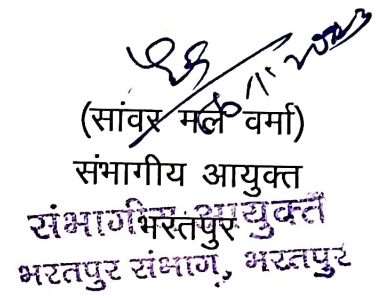 (सांवर मल वर्मा)
संभागीय आयुक्त
भरतपुर
संभागीय आयुक्त
भरतपुर संभाग, भरतपुर